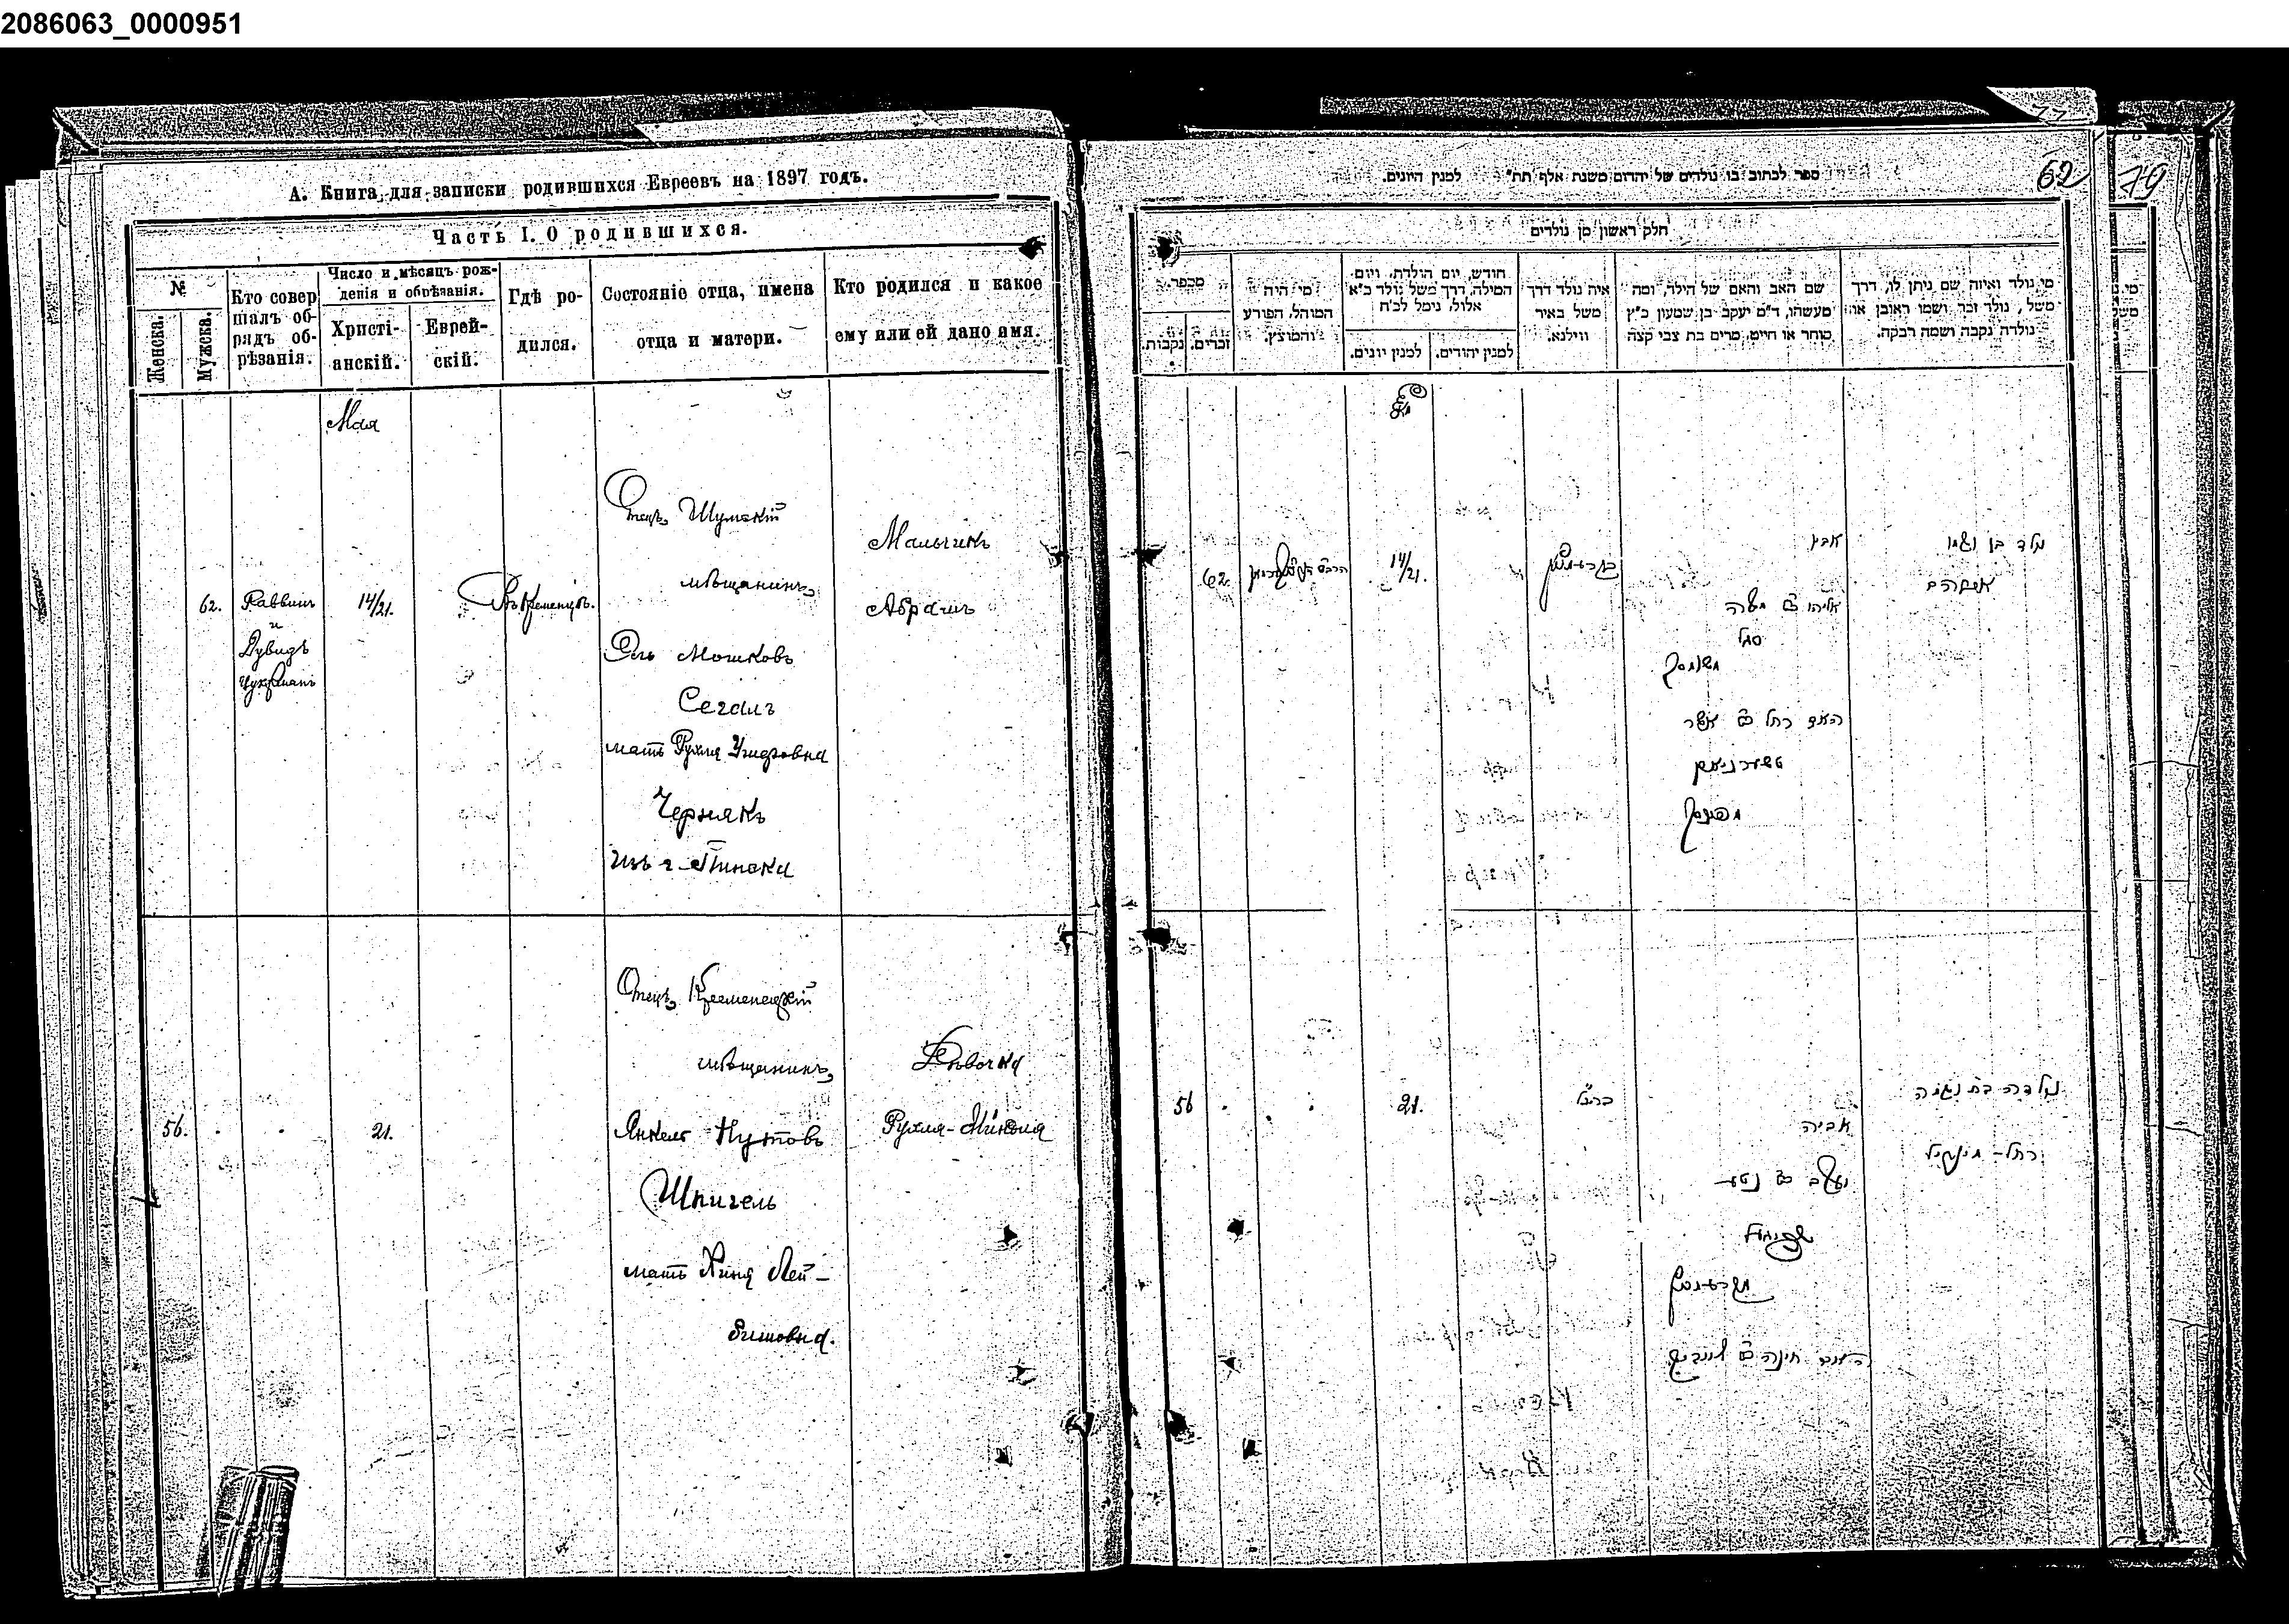 2086063_0000951
А. Книга для записки родившихся Евреевъ на 1897 годъ.
Часть I. О родившихся.
№
Женска.
Мужска.
Кто совер
шалъ об-
рядъ об-
рѣзанія.
Число и мѣсяцъ рож-
денія и обрѣзанія.
Христі-
анскій.
Еврей-
скій.
Гдѣ ро-
дился.
Состояніе отца, имена
отца и матери.
Кто родился и какое
ему или ей дано имя.
Мая
62.
Раввинъ
и
Дувидъ
Цукерманъ
14/21.
Въ Кременцѣ.
Отецъ Шумскій
мѣщанинъ,
Эль Мошковъ
Сегалъ
мать Рухля Ушеровна
Чернякъ
изъ г. Пинска
Мальчикъ
Абрамъ
56.
21.
Отецъ Кременецкій
мѣщанинъ,
Янкель Нутовъ
Шпигель
мать Хиня Лей-
бишовна.
Дѣвочка
Рухля-Миндля
ספר לכתוב בו נולדים של יהדום משנת אלף תת״ למנין היונים.
62
79
חלק ראשון מן נולדים
מי נולד ואיזה שם ניתן לו, דרך
משל, נולד זכר ושמו ראובן או
נולדה נקבה ושמה רבקה.
שם האב והאם של הילד, ומה
מעשהו, ד״מ יעקב בן שמעון כ״ץ
סוחר או חייט, מרים בת צבי קצה
איה נולד דרך
משל באיר
ווילנא.
חודש, יום הולדת, ויום
המילה, דרך משל נולד כ״א
אלול, נימל לכ״ח
למנין יהודים.
למנין יונים.
מי היה
המוהל, הפורע
והמוצץ.
מספר.
זכרים.
נקבות.
62.
14/21.
נולד בן ושמו
אברהם
אביו
אליהו ב״ר משה
סגל
משומסק
האם רחל ב״ר אשר
טשערניאק
מפינסק
56
21.
כנ״ל
נולדה בת ושמה
רחל-מינדיל
אביה
יעקב ב״ר נטע
שפיגעל
מקרעמניץ
האם חינה ב״ר לייביש